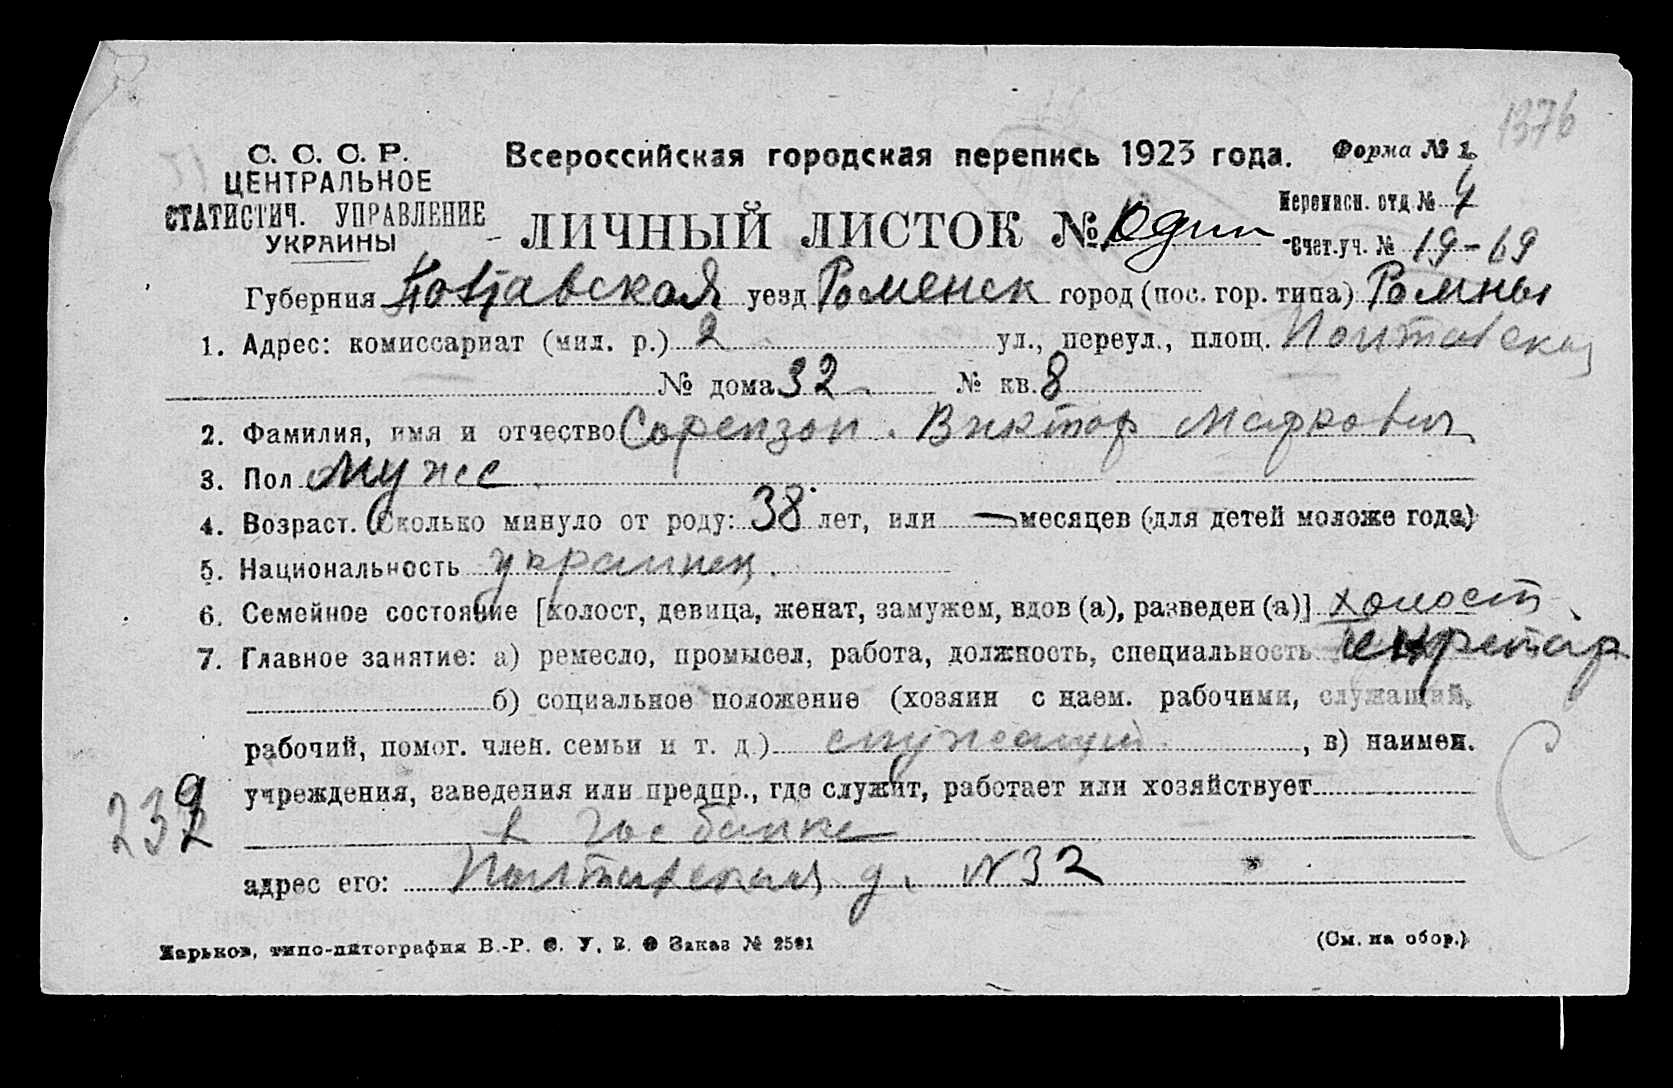 1376
С. С. С. Р.
ЦЕНТРАЛЬНОЕ
СТАТИСТИЧ. УПРАВЛЕНИЕ
УКРАИНЫ
Всероссийская городская перепись 1923 года.
Форма № 1.
ЛИЧНЫЙ ЛИСТОК № Один
Переписн. отд № 4
Счет.уч. № 19-69
Губерния Полтавской уезд Роменск город (пос. гор. типа) Ромны
1. Адрес: комиссариат (мил. р.) 2 ул., переул., площ. Полтавская
№ дома 32 № кв. 8
2. Фамилия, имя и отчество Сорензон. Виктор Маркович
3. Пол муже
4. Возраст. Сколько минуло от роду: 38 лет, или — месяцев (для детей моложе года)
5. Национальность украинец.
6. Семейное состояние [холост, девица, женат, замужем, вдов (а), разведен (а)] холост
7. Главное занятие: а) ремесло, промысел, работа, должность, специальность секретарь
б) социальное положение (хозяин с наем. рабочими, служащий,
рабочий, помог. член. семьи и т. д.) служащий, в) наимен.
учреждения, заведения или предпр., где служит, работает или хозяйствует
в Госбанке
адрес его: Полтавская д. № 32
239
Харьков, типо-литография В.-Р. С. У. В. О Заказ № 2501
(См. на обор.)